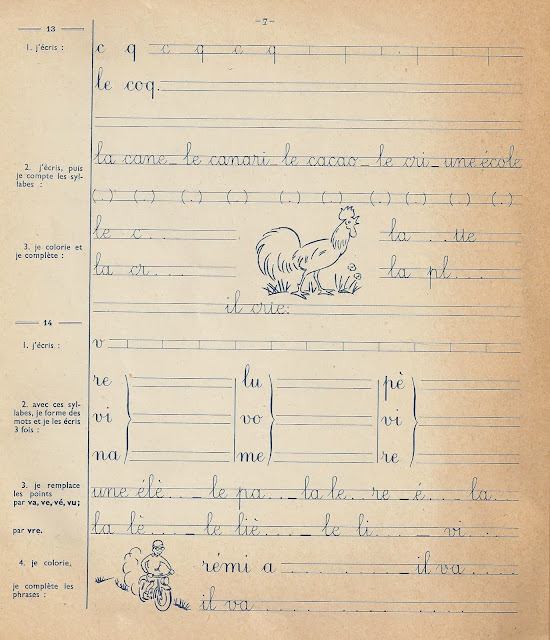 -7-
13
1. j'écris :
c q c q c q
le coq.
2. j'écris, puis je compte les syllabes :
la cane _ le canari _ le cacao _ le cri _ une école
(.) (.) (.) (.) (.) (.) (.) (.) (.) (.) (.)
3. je colorie et je complète :
le c. . . . la . . tte
la cr. . . . la pl. . . .
il crie:
14
1. j'écris :
v
2. avec ces syllabes, je forme des mots et je les écris 3 fois :
re lu pè
vi vo vi
na me re
3. je remplace les points par va, ve, vé, vu;
une élè. . . _ le pa. . . _ la le. . re _ é. . . _ la. . .
par vre.
la lè. . . . _ le liè. . . . _ le li. . . . _ vi. . . .
4. je colorie,
je complète les phrases :
rémi a . . . . . . . . . . _ il va. . . . .
il va. . . . . . . . . . . . . . . . . . . .